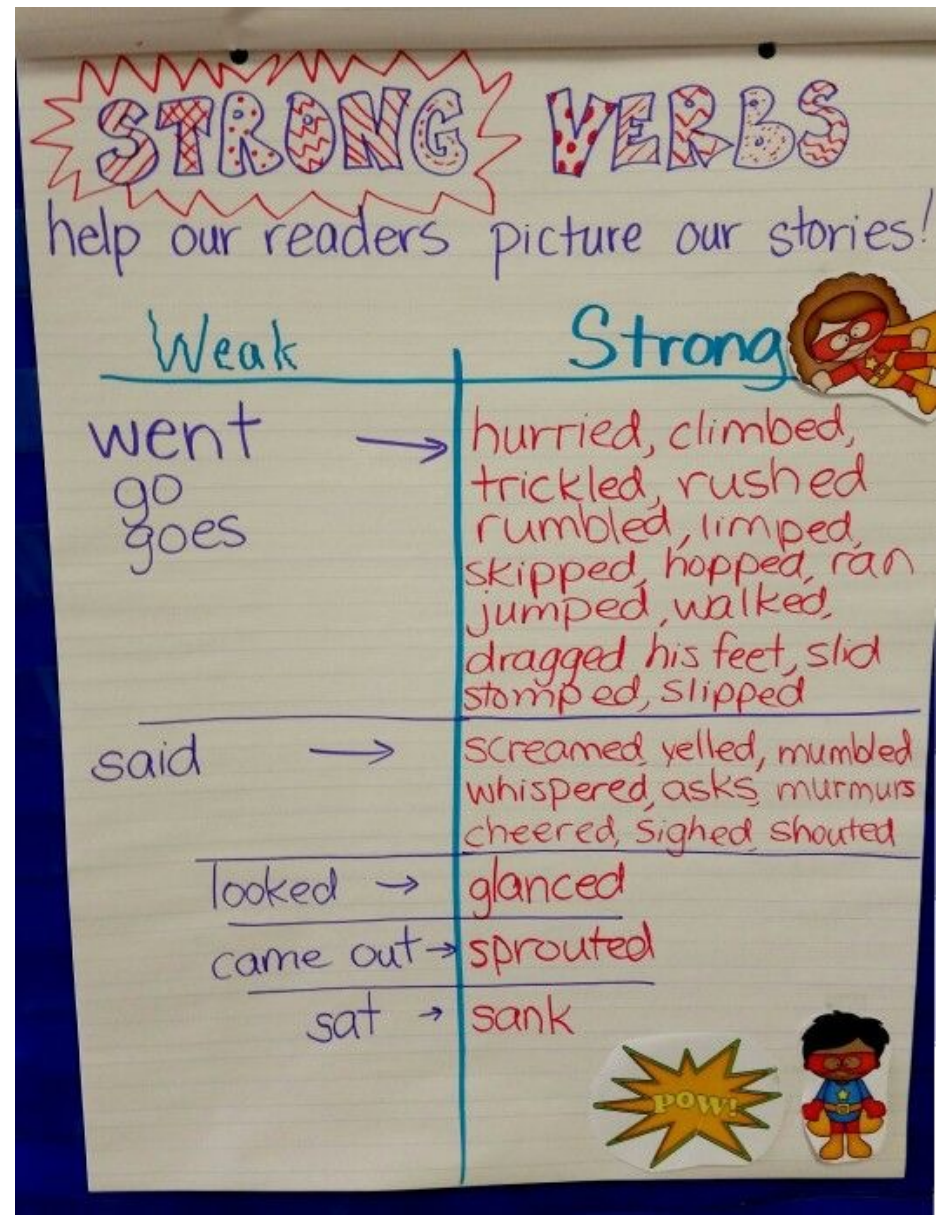 STRONG VERBS
help our readers picture our stories!
Weak Strong
went → hurried, climbed,
go trickled, rushed
goes rumbled, limped,
skipped, hopped, ran
jumped, walked,
dragged his feet, slid
stomped, slipped
said → screamed, yelled, mumbled
whispered, asks, murmurs
cheered, sighed, shouted
looked → glanced
came out → sprouted
sat → sank
POW!